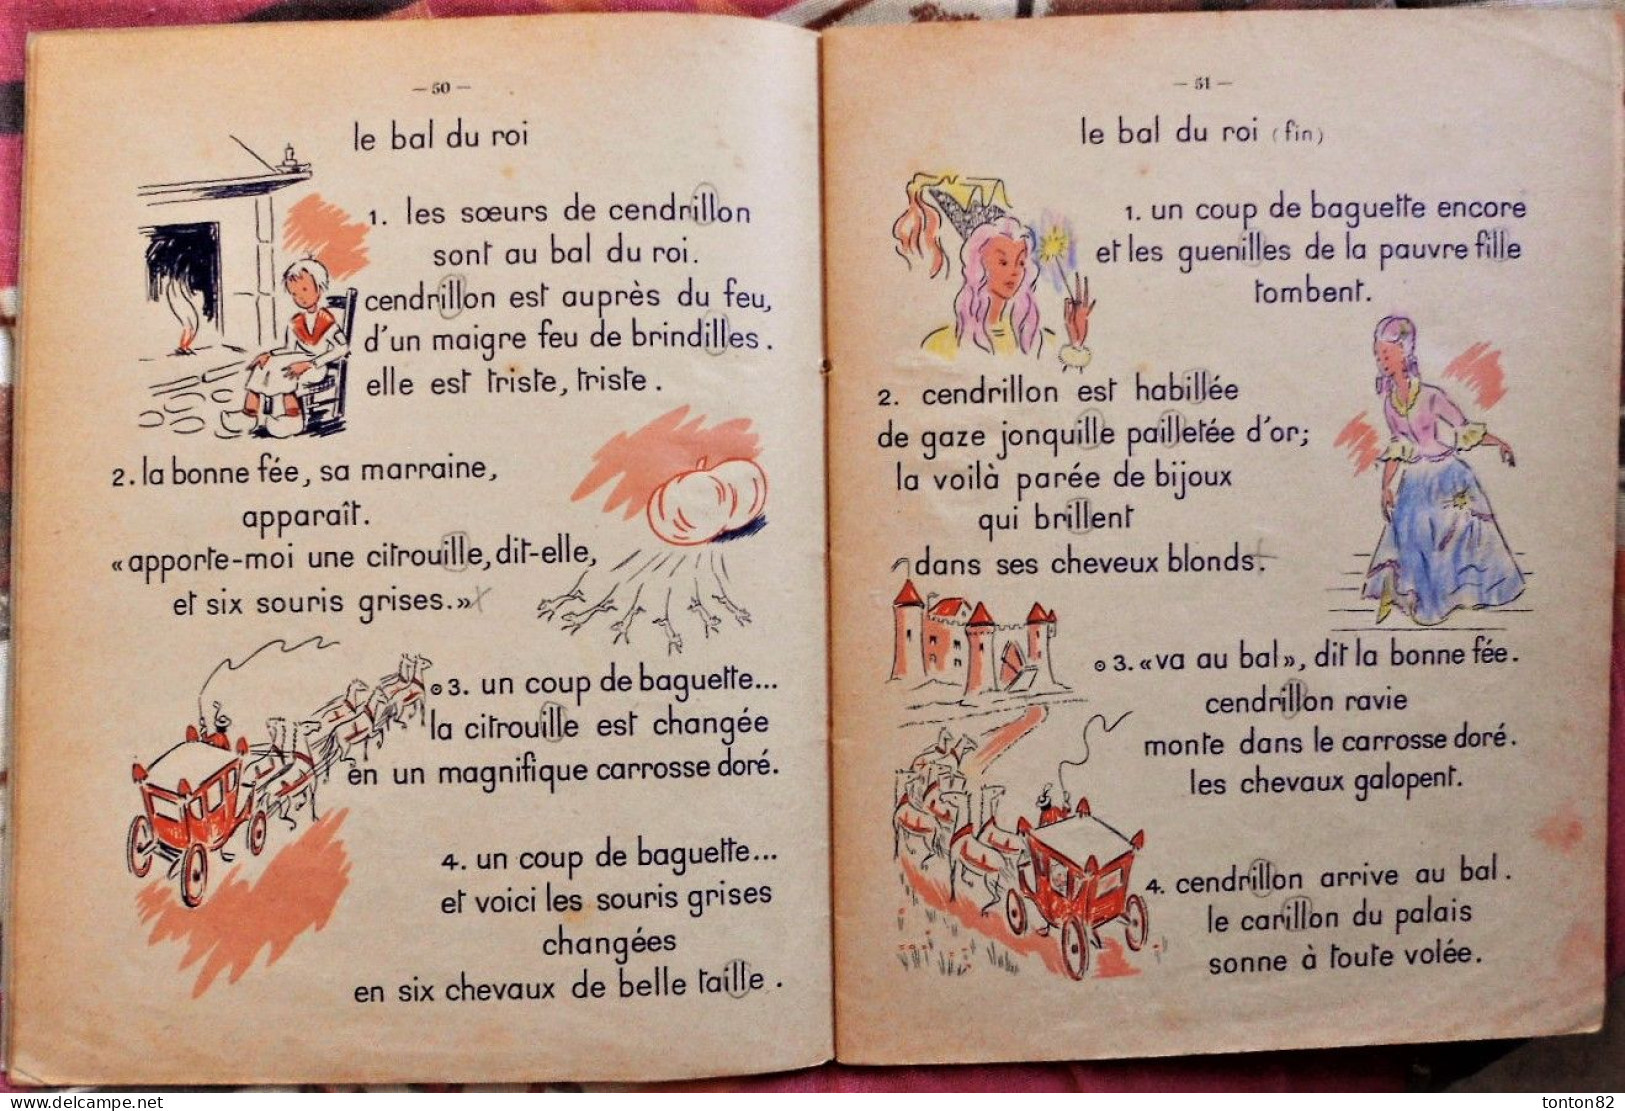 — 50 —
le bal du roi
1. les sœurs de cendrillon
sont au bal du roi.
cendrillon est auprès du feu,
d'un maigre feu de brindilles.
elle est triste, triste.
2. la bonne fée, sa marraine,
apparaît.
« apporte-moi une citrouille, dit-elle,
et six souris grises. »
3. un coup de baguette...
la citrouille est changée
en un magnifique carrosse doré.
4. un coup de baguette...
et voici les souris grises
changées
en six chevaux de belle taille.
— 51 —
le bal du roi (fin)
1. un coup de baguette encore
et les guenilles de la pauvre fille
tombent.
2. cendrillon est habillée
de gaze jonquille pailletée d'or;
la voilà parée de bijoux
qui brillent
dans ses cheveux blonds.
3. « va au bal », dit la bonne fée.
cendrillon ravie
monte dans le carrosse doré.
les chevaux galopent.
4. cendrillon arrive au bal.
le carillon du palais
sonne à toute volée.
delcampe.net
tonton82